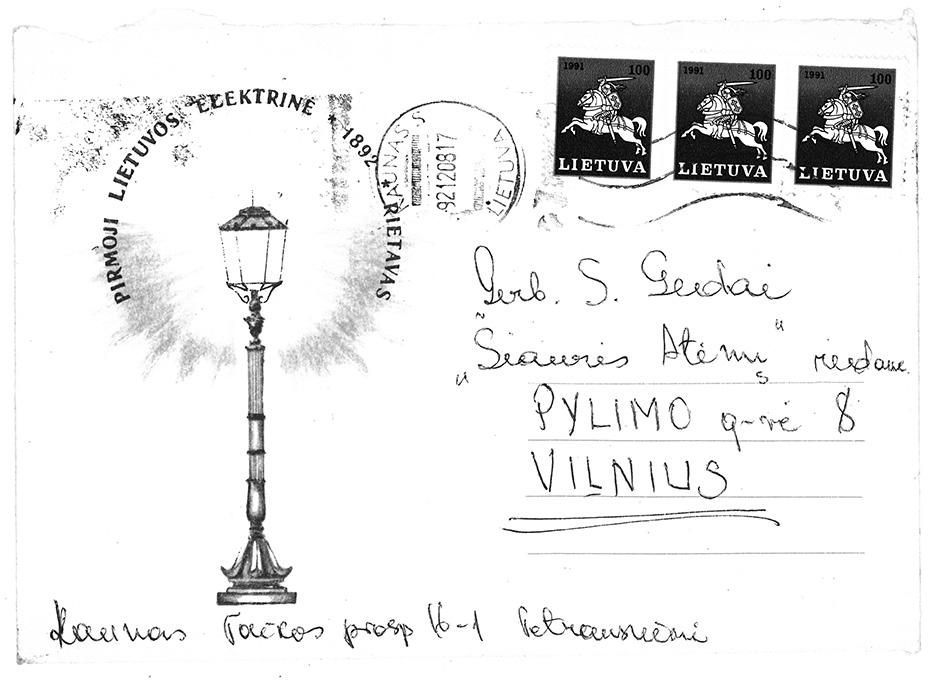 PIRMOJI LIETUVOS ELEKTRINĖ * 1892 * RIETAVAS
KAUNAS 5
92120817
LIETUVA
1991 100
LIETUVA
1991 100
LIETUVA
1991 100
LIETUVA
Gerb. S. Gedai
"Šiaurės Atėnų"
PYLIMO g-vė 8
VILNIUS
Kaunas Taikos prosp 16-1